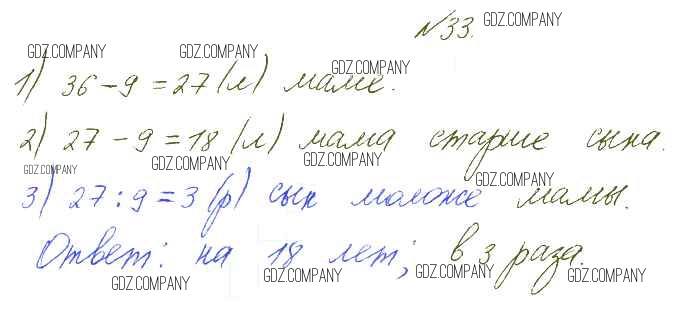 №33. GDZ.COMPANY
GDZ.COMPANY GDZ.COMPANY GDZ.COMPANY
1) 36-9=27 (л) маме.
2) 27-9=18 (л) мама старше сына.
GDZ.COMPANY GDZ.COMPANY GDZ.COMPANY GDZ.COMPANY
3) 27:9=3 (р) сын моложе мамы.
GDZ.COMPANY
Ответ: на 18 лет; в 3 раза.
GDZ.COMPANY GDZ.COMPANY GDZ.COMPANY GDZ.COMPANY